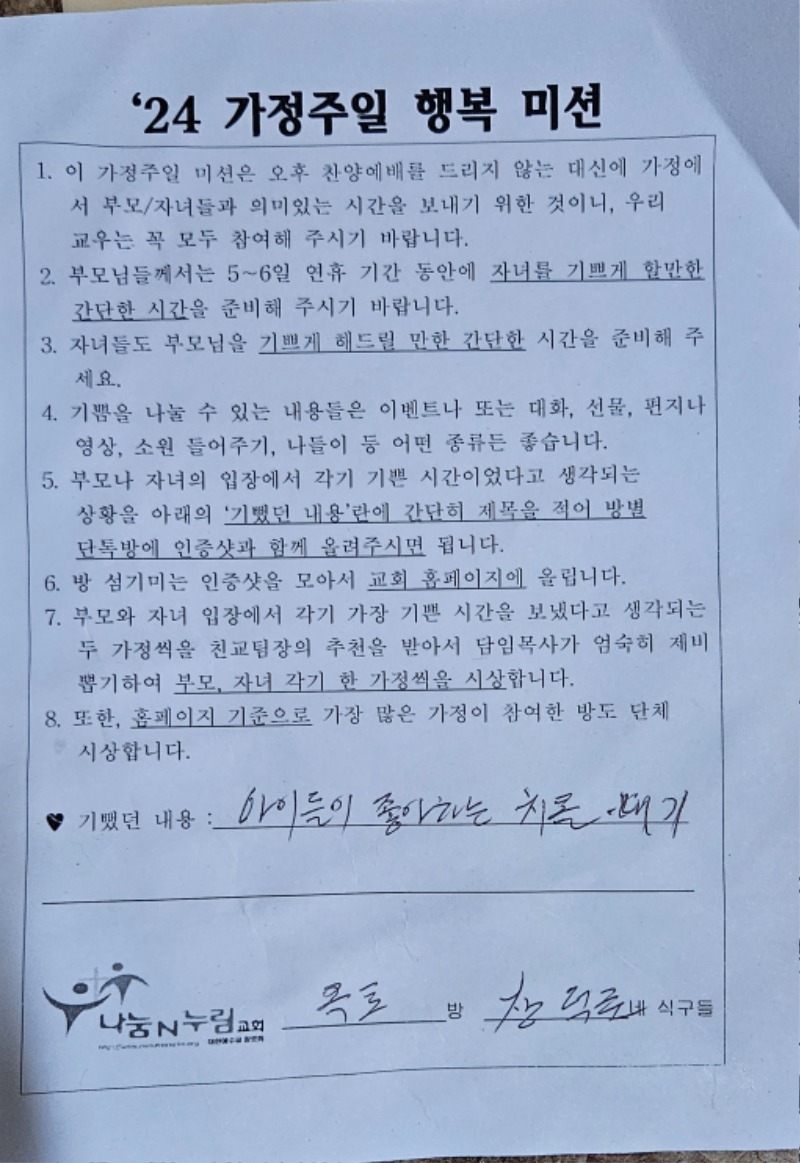 ‘24 가정주일 행복 미션
1. 이 가정주일 미션은 오후 찬양예배를 드리지 않는 대신에 가정에
서 부모/자녀들과 의미있는 시간을 보내기 위한 것이니, 우리
교우는 꼭 모두 참여해 주시기 바랍니다.
2. 부모님들께서는 5~6일 연휴 기간 동안에 자녀를 기쁘게 할만한
간단한 시간을 준비해 주시기 바랍니다.
3. 자녀들도 부모님을 기쁘게 해드릴 만한 간단한 시간을 준비해 주
세요.
4. 기쁨을 나눌 수 있는 내용들은 이벤트나 또는 대화, 선물, 편지나
영상, 소원 들어주기, 나들이 등 어떤 종류든 좋습니다.
5. 부모나 자녀의 입장에서 각기 기쁜 시간이었다고 생각되는
상황을 아래의 ‘기뻤던 내용’란에 간단히 제목을 적어 방별
단톡방에 인증샷과 함께 올려주시면 됩니다.
6. 방 섬기미는 인증샷을 모아서 교회 홈페이지에 올립니다.
7. 부모와 자녀 입장에서 각기 가장 기쁜 시간을 보냈다고 생각되는
두 가정씩을 친교팀장의 추천을 받아서 담임목사가 엄숙히 제비
뽑기하여 부모, 자녀 각기 한 가정씩을 시상합니다.
8. 또한, 홈페이지 기준으로 가장 많은 가정이 참여한 방도 단체
시상합니다.
♥ 기뻤던 내용 : 아이들이 좋아하는 치론 때기
나눔N누림교회 옥토 방 네 식구들
대한예수교 장로회